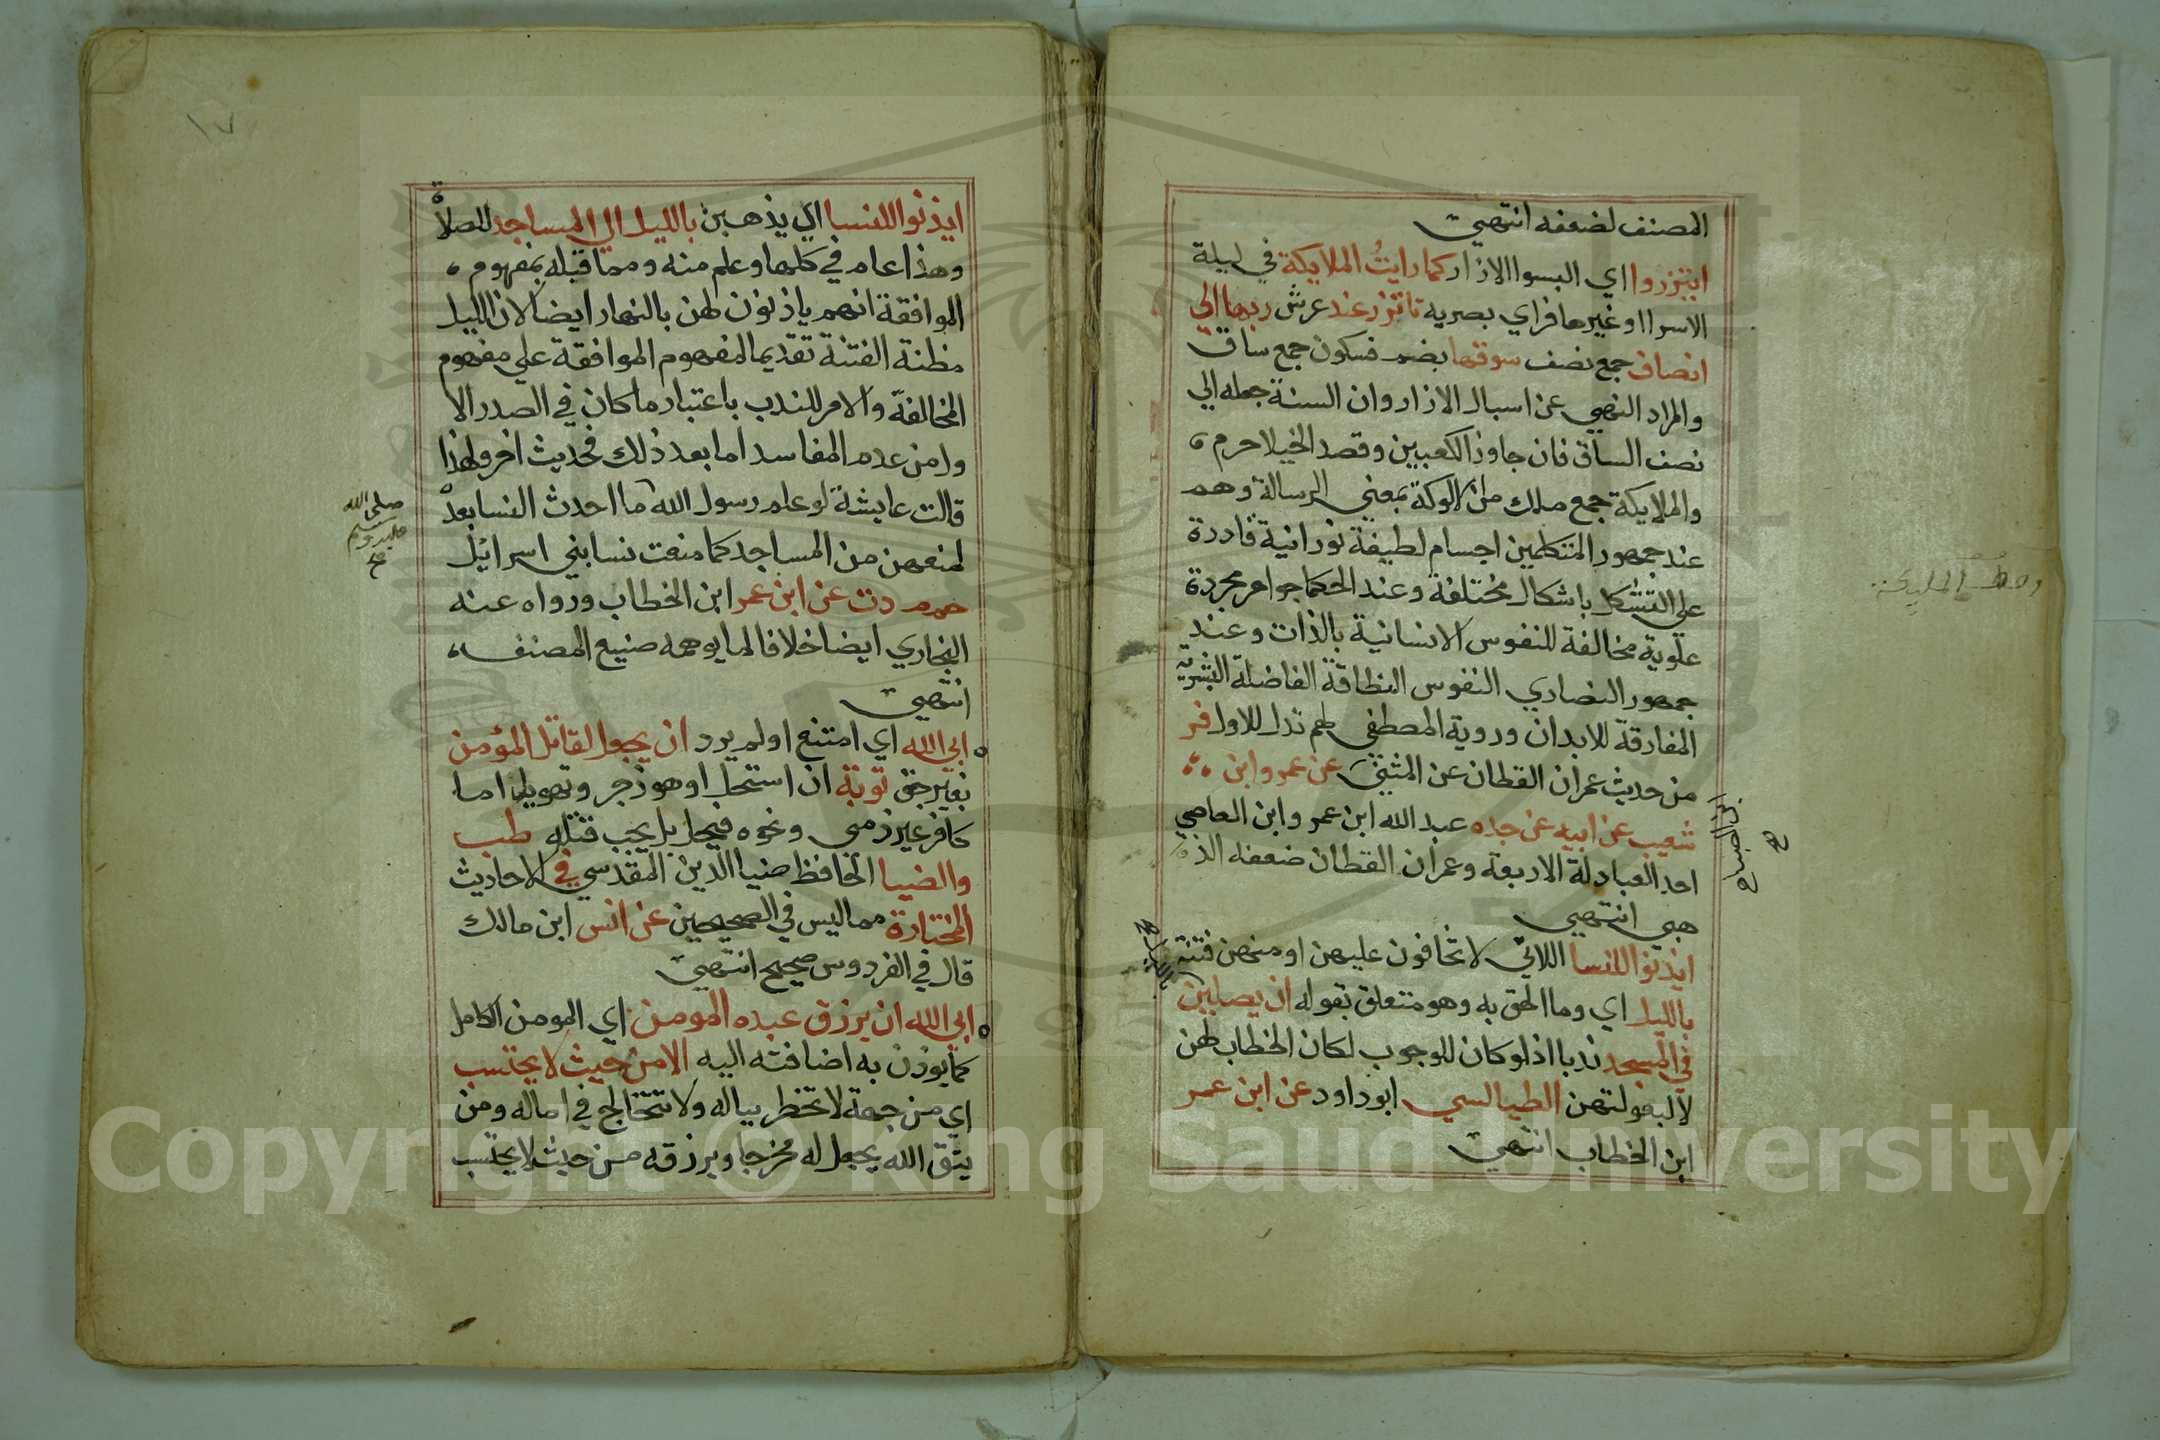 المصنف لضعفه انتهي
ايتزروا اي البسوا الازار كما رايت الملايكة في ليلة
الاسرا او غيرها فراي بصريه تاتزر عند عرش ربها الي
انصاف جمع نصف سوقها بضم فسكون جمع ساق
والمراد النهي عن اسبال الازار وان السنة جعله الي
نصف الساق فان جاوز الكعبين وقصد الخيلا حرم
والملايكة جمع ملك من الالوكة بمعني الرسالة وهم
عند جمهور المتكلمين اجسام لطيفة نورانية قادرة
علي التشكل باشكال مختلفة وعند الحكما جواهر مجردة
علوية مخالفة للنفوس الانسانية بالذات وعند
جمهور النصاري النفوس النطاقة الفاضلة البشرية
المفارقة للابدان وروية المصطفي لهم تدل للاول فر
من حديث عمران القطان عن المثني عن عمرو ابن
شعيب عن ابيه عن جده عبد الله ابن عمر وابن العاصي
احد العبادلة الاربعة وعمران القطان ضعفه الذ
هبي انتهي
ايذنوا للنسا اللاتي لا تخافون عليهن او منهن فتنة
بالليل اي وما الحق به وهو متعلق بقوله ان يصلين
في المسجد ندبا اذ لو كان للوجوب لكان الخطاب لهن
لا لبعولتهن الطيالسي ابو داود عن ابن عمر
ابن الخطاب انتهي
ابن الصباح
صح
١٧
ايذنوا للنسا اي يذهبن بالليل الي المساجد للصلاة
وهذا عام في كلها وعلم منه ومما قبله بمفهوم
الموافقة انهم ياذنون لهن بالنهار ايضا لان الليل
مظنة الفتنة تقديما لمفهوم الموافقة علي مفهوم
المخالفة والامر للندب باعتبار ما كان في الصدر الا
ول من عدم المفاسد اما بعد ذلك فحديث اخر ولهذا
قالت عايشة لو علم رسول الله ما احدث النسا بعده
لمنعهن من المساجد كما منعت نسا بني اسرائيل
حم م د ت عن ابن عمر ابن الخطاب ورواه عنه
البخاري ايضا خلافا لما يوهمه صنيع المصنف
انتهي
ابي الله اي امتنع او لم يرد ان يجعل لقاتل المؤمن
بغير حق توبة ان استحل او هو زجر وتهويل اما
كافر غير ذمي ونحوه فيحل بل يجب قتله طب
والضيا الحافظ ضيا الدين المقدسي في الاحاديث
المختارة مما ليس في الصحيحين عن انس ابن مالك
قال في الفردوس صحيح انتهي
ابي الله ان يرزق عبده المومن اي المومن الكامل
كما يوذن به اضافته اليه الا من حيث لا يحتسب
اي من جهة لا تخطر بباله ولا تختالج في اماله ومن
يتق الله يجعل له مخرجا ويرزقه من حيث لا يحتسب
صلي الله
عليه وسلم
صح
Copyright © King Saud University